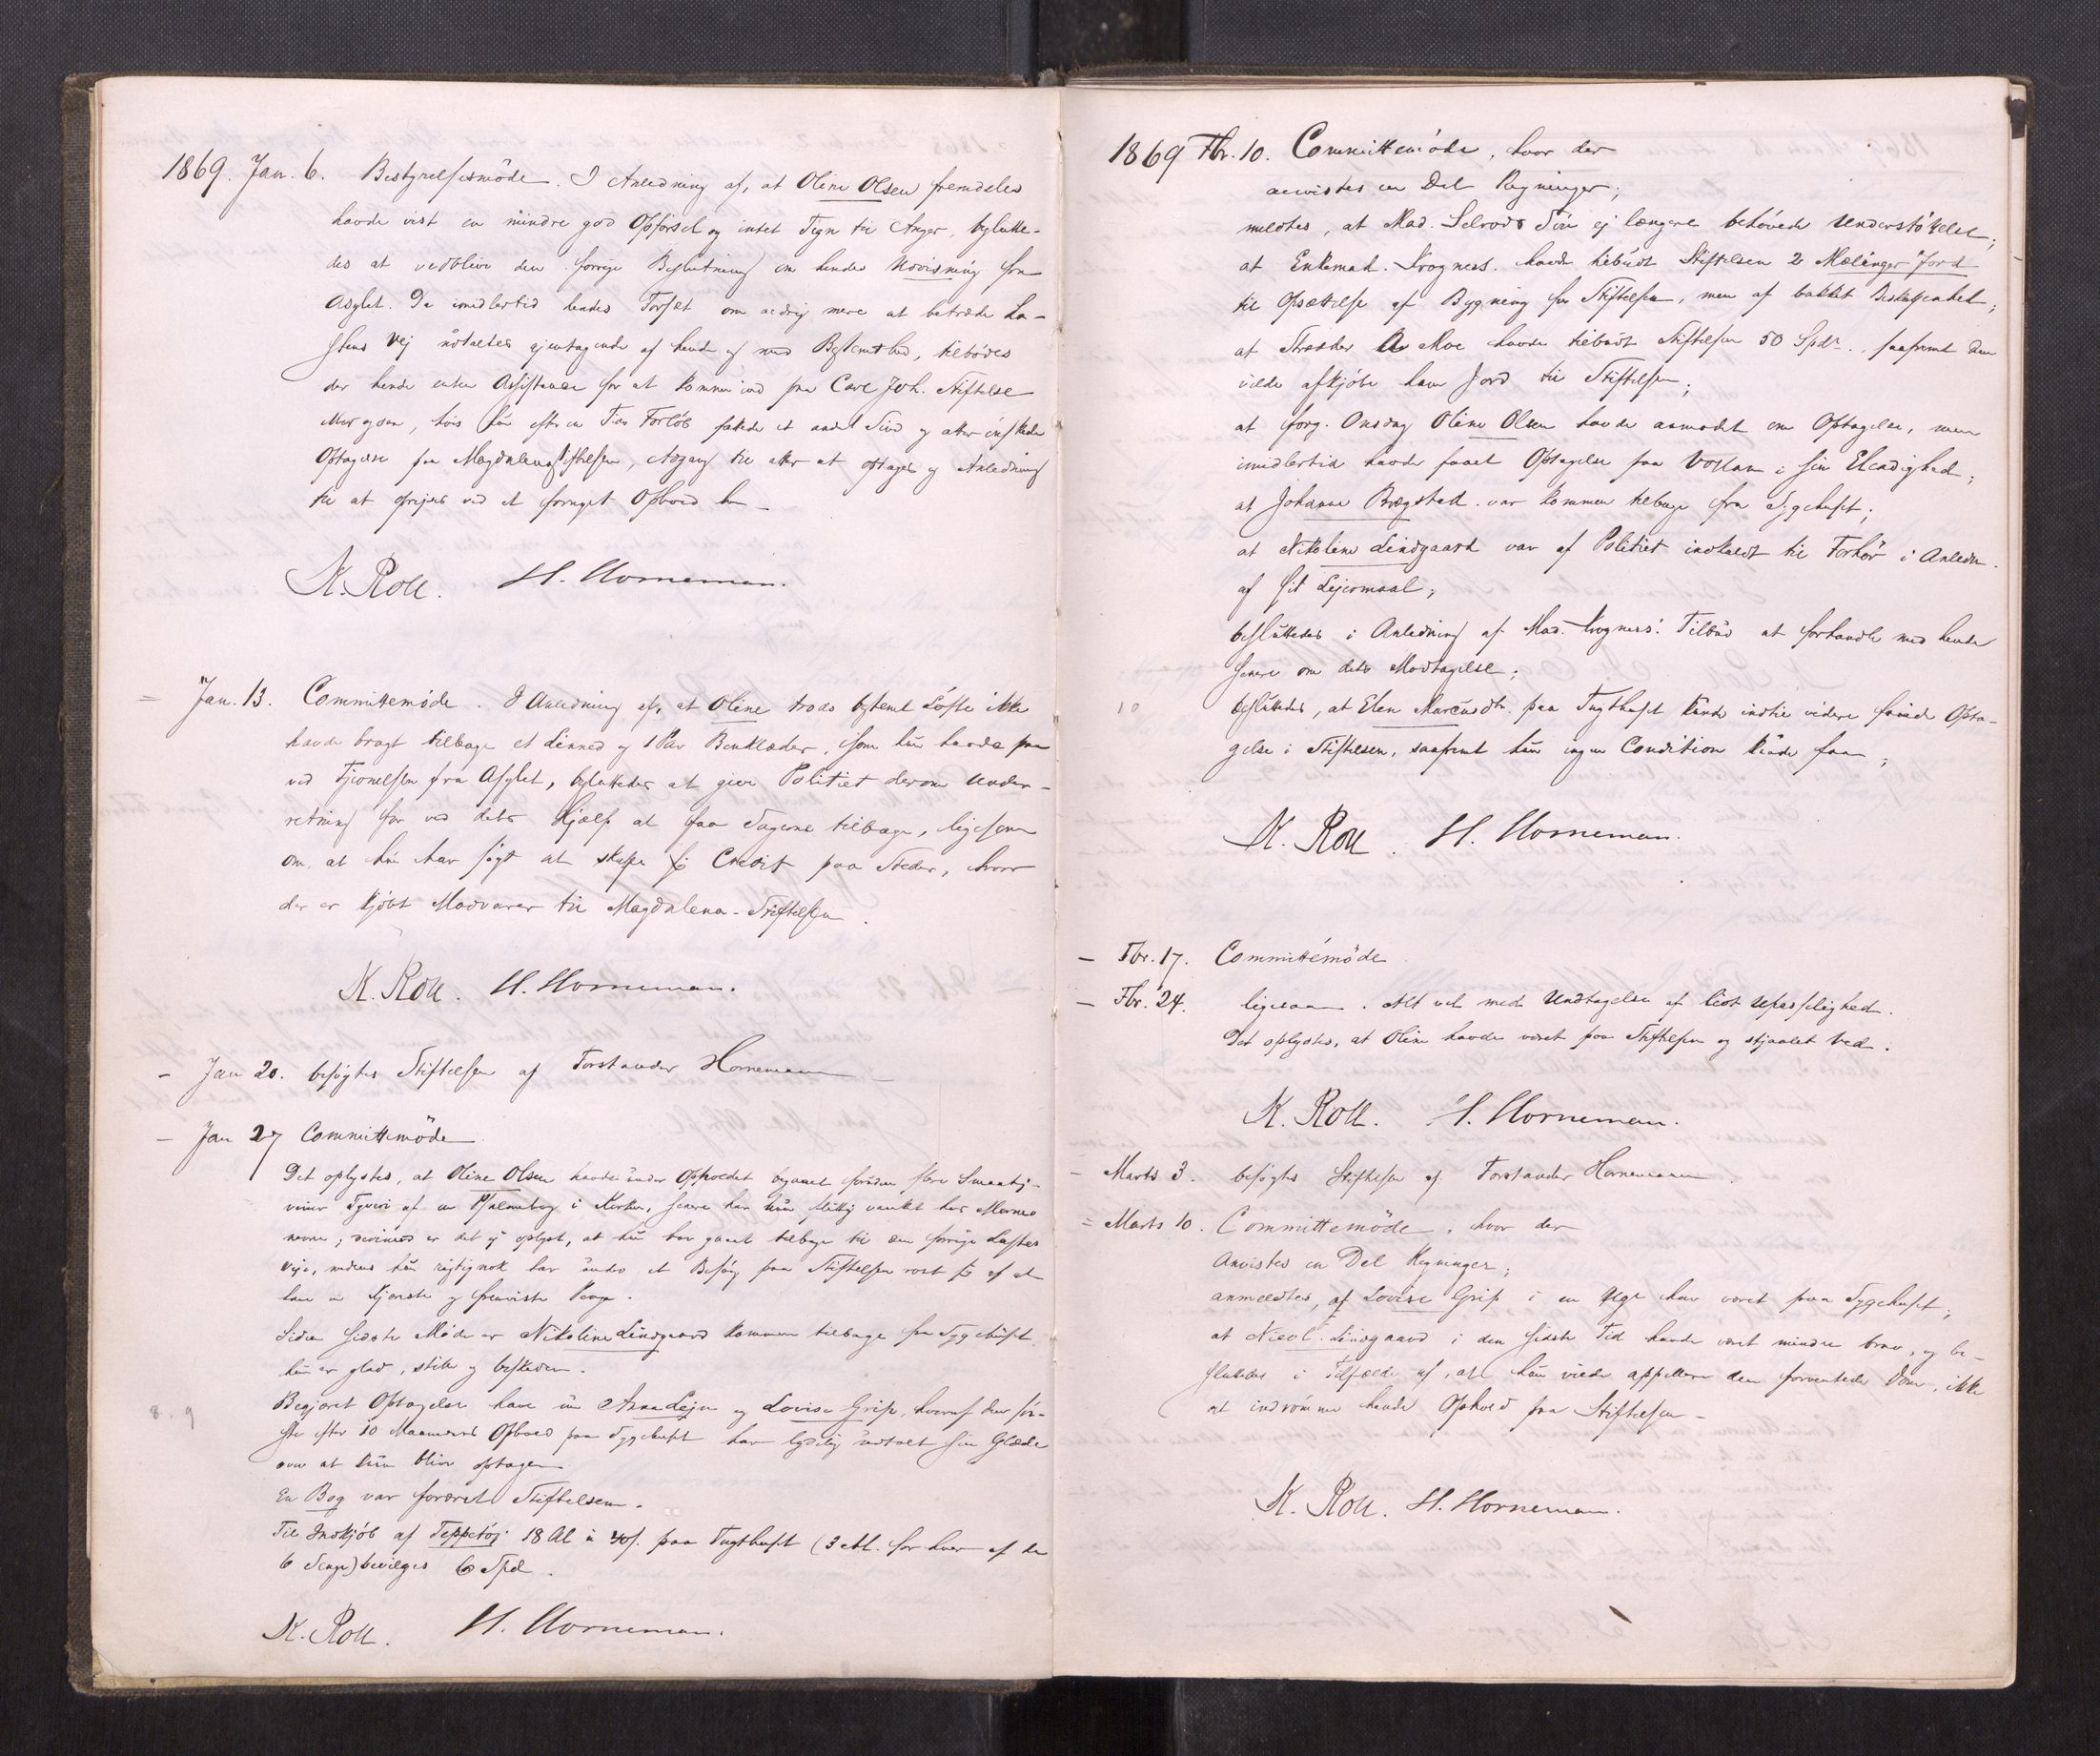 1869. Jan. 6. Bestyrelsesmöde. I Anledning af, at Oline Olsen fremdeles
havde vist en mindre god Opførsel og intet Tegn til Anger, beslutte-
des at vedblive den forrige Beslutning om hendes Udvisning fra
Asylet. Da imidlertid hendes Forsæt om aldrig mere at betræde La-
stens Vej udtaltes gjentagende af hende og med Bestemthed, tilbødes
der hende enten Assistance for at komme ind paa Carl Joh. Stiftelse
eller ogsaa, hvis hun efter en Tids Forløb fattede et andet Sind og atter ønskede
Optagelse paa Magdalenastiftelsen, Adgang til atter at optages og Anledning
til at prøves ved et fornyet Ophold her
K. Roll. H. Horneman.
= Jan. 13. Committemöde. I Anledning af, at Oline trods bestemt Löfte ikke
havde bragt tilbage et Linned og 1 Par Benklæder, som hun havde paa
ved Fjernelsen fra Asylet, besluttedes at give Politiet derom Under-
retning for ved dets Hjælp at faa Sagerne tilbage, ligesom
om, at hun har søgt at skaffe sig Credit paa Steder, hvor
der er kjøbt Madvarer til Magdalena-Stiftelsen.
K. Roll. H. Horneman.
- Jan 20. besøgtes Stiftelsen af Forstander Hornemann
- Jan 27 Committemöde
Det oplystes, at Oline Olsen havde under Opholdet begaaet foruden flere Smaaty-
verier Tyveri af en Psalmebog i Kirken, senere har hun flittig vanket hos
; derimod er det ej oplyst, at hun har gaaet tilbage til den forrige Lastens
Veje, medens hun rigtignok har under et Besøg paa Stiftelsen rost sig af at
have en Kjæreste og fremviste Penge.
Siden sidste Møde er Nikoline Lindgaard kommen tilbage fra Sygehuset
hun er glad, stille og beskeden.
8. 9 Begjæret Optagelse have nu Anna Lejn og Lovise Grip, hvoraf den før-
ste efter 10 Maaneders Ophold paa Sygehuset har lydelig udtalt sin Glæde
over at kunne blive optagen
En Bog var foræret Stiftelsen.
Til Indkjöb af Teppetøj 18 Al à 40 s. paa Tugthuset (3 Al. for hver af de
6 Senge) bevilges 6 Spd.
K. Roll. H. Horneman.
1869 Fbr. 10. Committemöde, hvor der
anvistes en Del Regninger;
meldtes, at Mad. Selvods Sön ej længere behövede Understöttelse;
at Enkemad. Krogness. havde tilbudt Stiftelsen 2 Mælinger Jord
til Opsættelse af Bygning for Stiftelsen, men af bakket Beskaffenhed;
at havde tilbudt Stiftelsen 50 Spdr. saafremt den
vilde afkjöbe ham Jord til Stiftelsen;
at forg. Onsdag Oline Olsen havde anmodet om Optagelse, men
imidlertid havde faaet Optagelse paa Vollan i sin Elendighed;
at Johanne Brægstad var kommen tilbage fra Sygehuset;
at Nikoline Lindgaard var af Politiet indkaldt til Forhör i Anledn.
af sit Lejermaal;
besluttedes i Anledning af Mad. Krogness' Tilbud at forhandle med hende
senere om dets Modtagelse;
10 besluttedes, at Elen Marcusdtr. paa Tugthuset kunde indtil videre finde Opta-
gelse i Stiftelsen, saafremt hun ingen Condition kunde faa;
K. Roll. H. Horneman.
- Fbr. 17. Committémöde
- Fbr. 24. ligesaa. Alt vel med Undtagelse af lidt Upasselighed.
Det oplystes, at Oline havde været paa Stiftelsen og stjaalet Ved.
K. Roll. H. Horneman.
- Marts 3. besøgtes Stiftelsen af Forstander Hornemann.
= Marts 10. Committemöde, hvor der
Anvistes en Del Regninger;
anmeldtes, at Lovise Grip i en Uge har været paa Sygehuset;
at Nicol. Lindgaard i den sidste Tid havde været mindre brav, og be-
sluttedes i Tilfælde af, at hun vilde appellere den forventede Dom, ikke
at indrömme hende Ophold paa Stiftelsen-
K. Roll. H. Horneman.